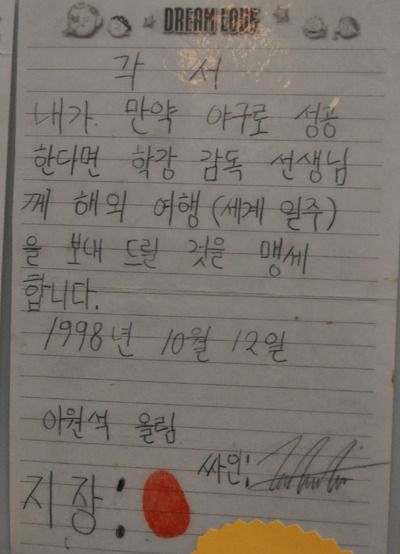 DREAM LOVE
각 서
내가 만약 야구로 성공
한다면 학강 감독 선생님
께 해외 여행(세계 일주)
을 보내 드릴 것을 맹세
합니다.
1998년 10월 12일
이원석 올림
싸인:
지장: